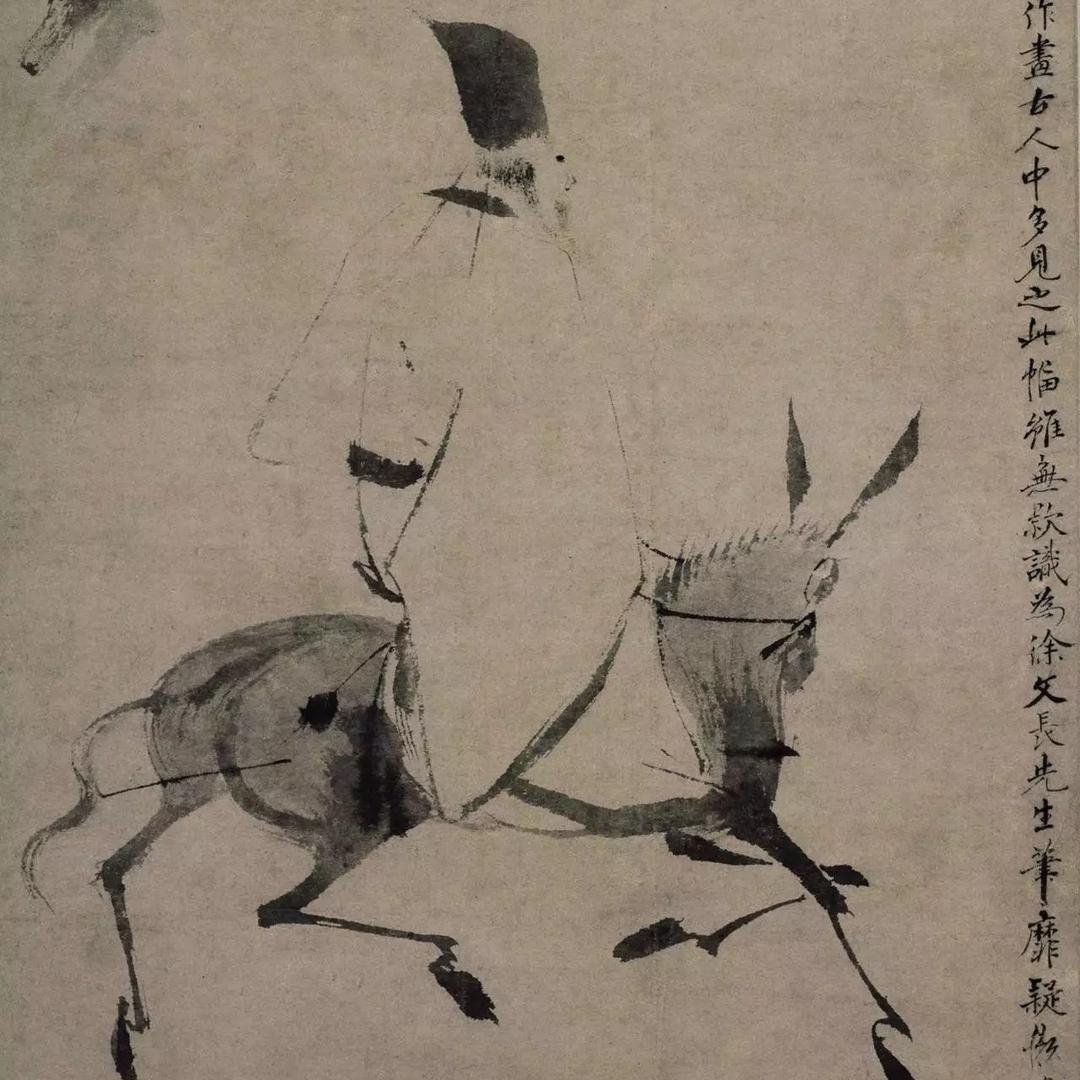 作畫古人中多見之此幅雖無款識為徐文長先生筆靡疑